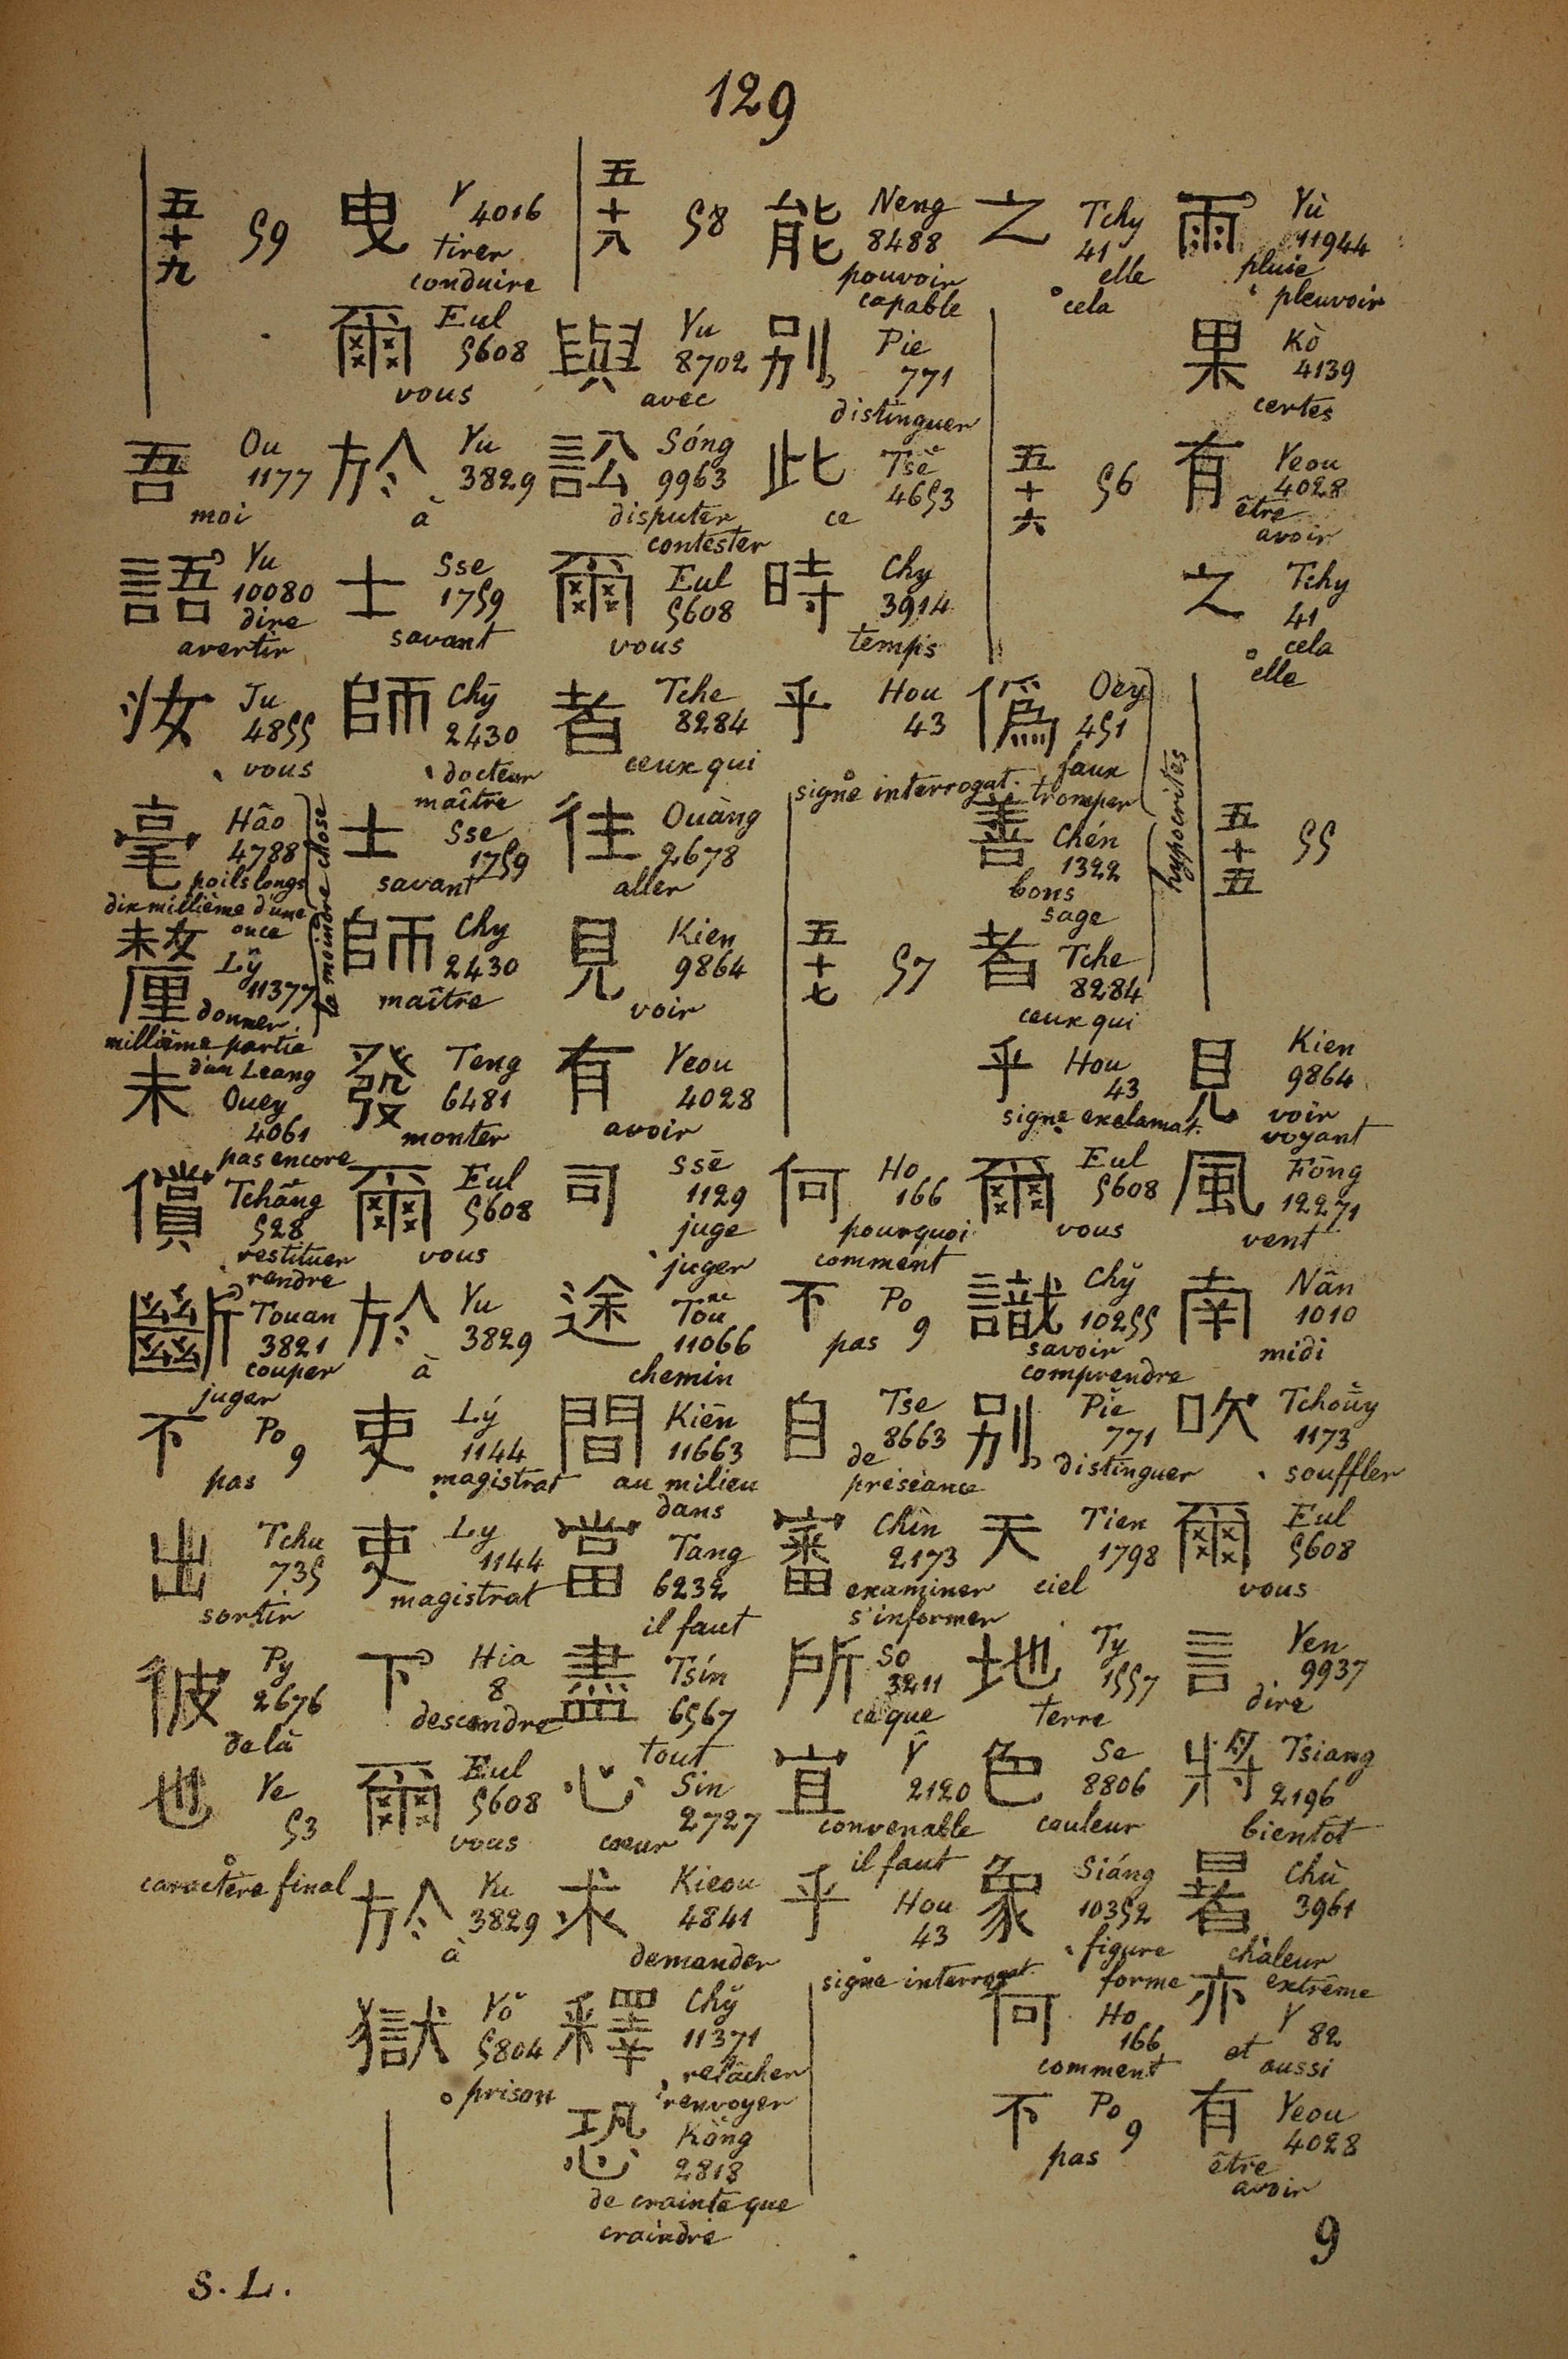 129
雨 Yù
11944
pluie
pleuvoir
果 Kò
4139
certes
有 Yeou
4028
être
avoir
之 Tchy
41
cela
elle
五十五 55
見 Kien
9864
voir
voyant
風 Fōng
12271
vent
南 Nân
1010
midi
吹 Tchoūy
1173
souffler
爾 Eul
5608
vous
言 Yen
9937
dire
將 Tsiang
2196
bientôt
暑 Chù
3961
chaleur
extrême
亦 Y
82
et aussi
有 Yeou
4028
être
avoir
之 Tchy
41
elle
cela
五十六 56
偽 Oey
451
faux
tromper
善 Chén
1322
bons
sage
者 Tche
8284
ceux qui
hypocrites
乎 Hou
43
signe exclamat.
爾 Eul
5608
vous
識 Chy
10255
savoir
comprendre
別 Pie
771
distinguer
天 Tien
1798
ciel
地 Ty
1557
terre
色 Se
8806
couleur
象 Siáng
10352
figure
forme
何 Ho
166
comment
不 Po
9
pas
能 Neng
8488
pouvoir
capable
別 Pie
771
distinguer
此 Tsè
4653
ce
時 Chy
3914
temps
乎 Hou
43
signe interrogat.
五十七 57
何 Ho
166
pourquoi
comment
不 Po
9
pas
自 Tse
8663
de
préséance
審 Chìn
2173
examiner
s'informer
所 So
3211
ce que
宜 Y
2120
convenable
il faut
乎 Hou
43
signe interrogat.
五十八 58
與 Yu
8702
avec
訟 Sóng
9963
disputer
contester
爾 Eul
5608
vous
者 Tche
8284
ceux qui
往 Ouàng
2678
aller
見 Kien
9864
voir
有 Yeou
4028
avoir
司 Ssē
1129
juge
juger
途 Tou
11066
chemin
間 Kiēn
11663
au milieu
dans
當 Tang
6232
il faut
盡 Tsín
6567
tout
心 Sin
2727
coeur
求 Kieou
4841
demander
釋 Chy
11371
relâcher
renvoyer
恐 Kòng
2818
de crainte que
craindre
曳 Y
4016
tirer
conduire
爾 Eul
5608
vous
於 Yu
3829
à
士 Sse
1759
savant
師 Chy
2430
docteur
maître
士 Sse
1759
savant
師 Chy
2430
maître
發 Teng
6481
monter
爾 Eul
5608
vous
於 Yu
3829
à
吏 Lý
1144
magistrat
吏 Ly
1144
magistrat
下 Hia
8
descendre
爾 Eul
5608
vous
於 Yu
3829
à
獄 Yŏ
5804
prison
五十九 59
吾 Ou
1177
moi
語 Yu
10080
dire
avertir
汝 Ju
4855
vous
毫 Hâo
4788
poils longs
dix millième d'une
once
釐 Lŷ
11377
donner
millième partie
d'un Leang
la moindre chose
未 Ouey
4061
pas encore
償 Tchâng
528
restituer
rendre
斷 Touan
3821
couper
juger
不 Po
9
pas
出 Tchu
735
sortir
彼 Py
2676
de là
也 Ye
53
caractère final
9
S. L.